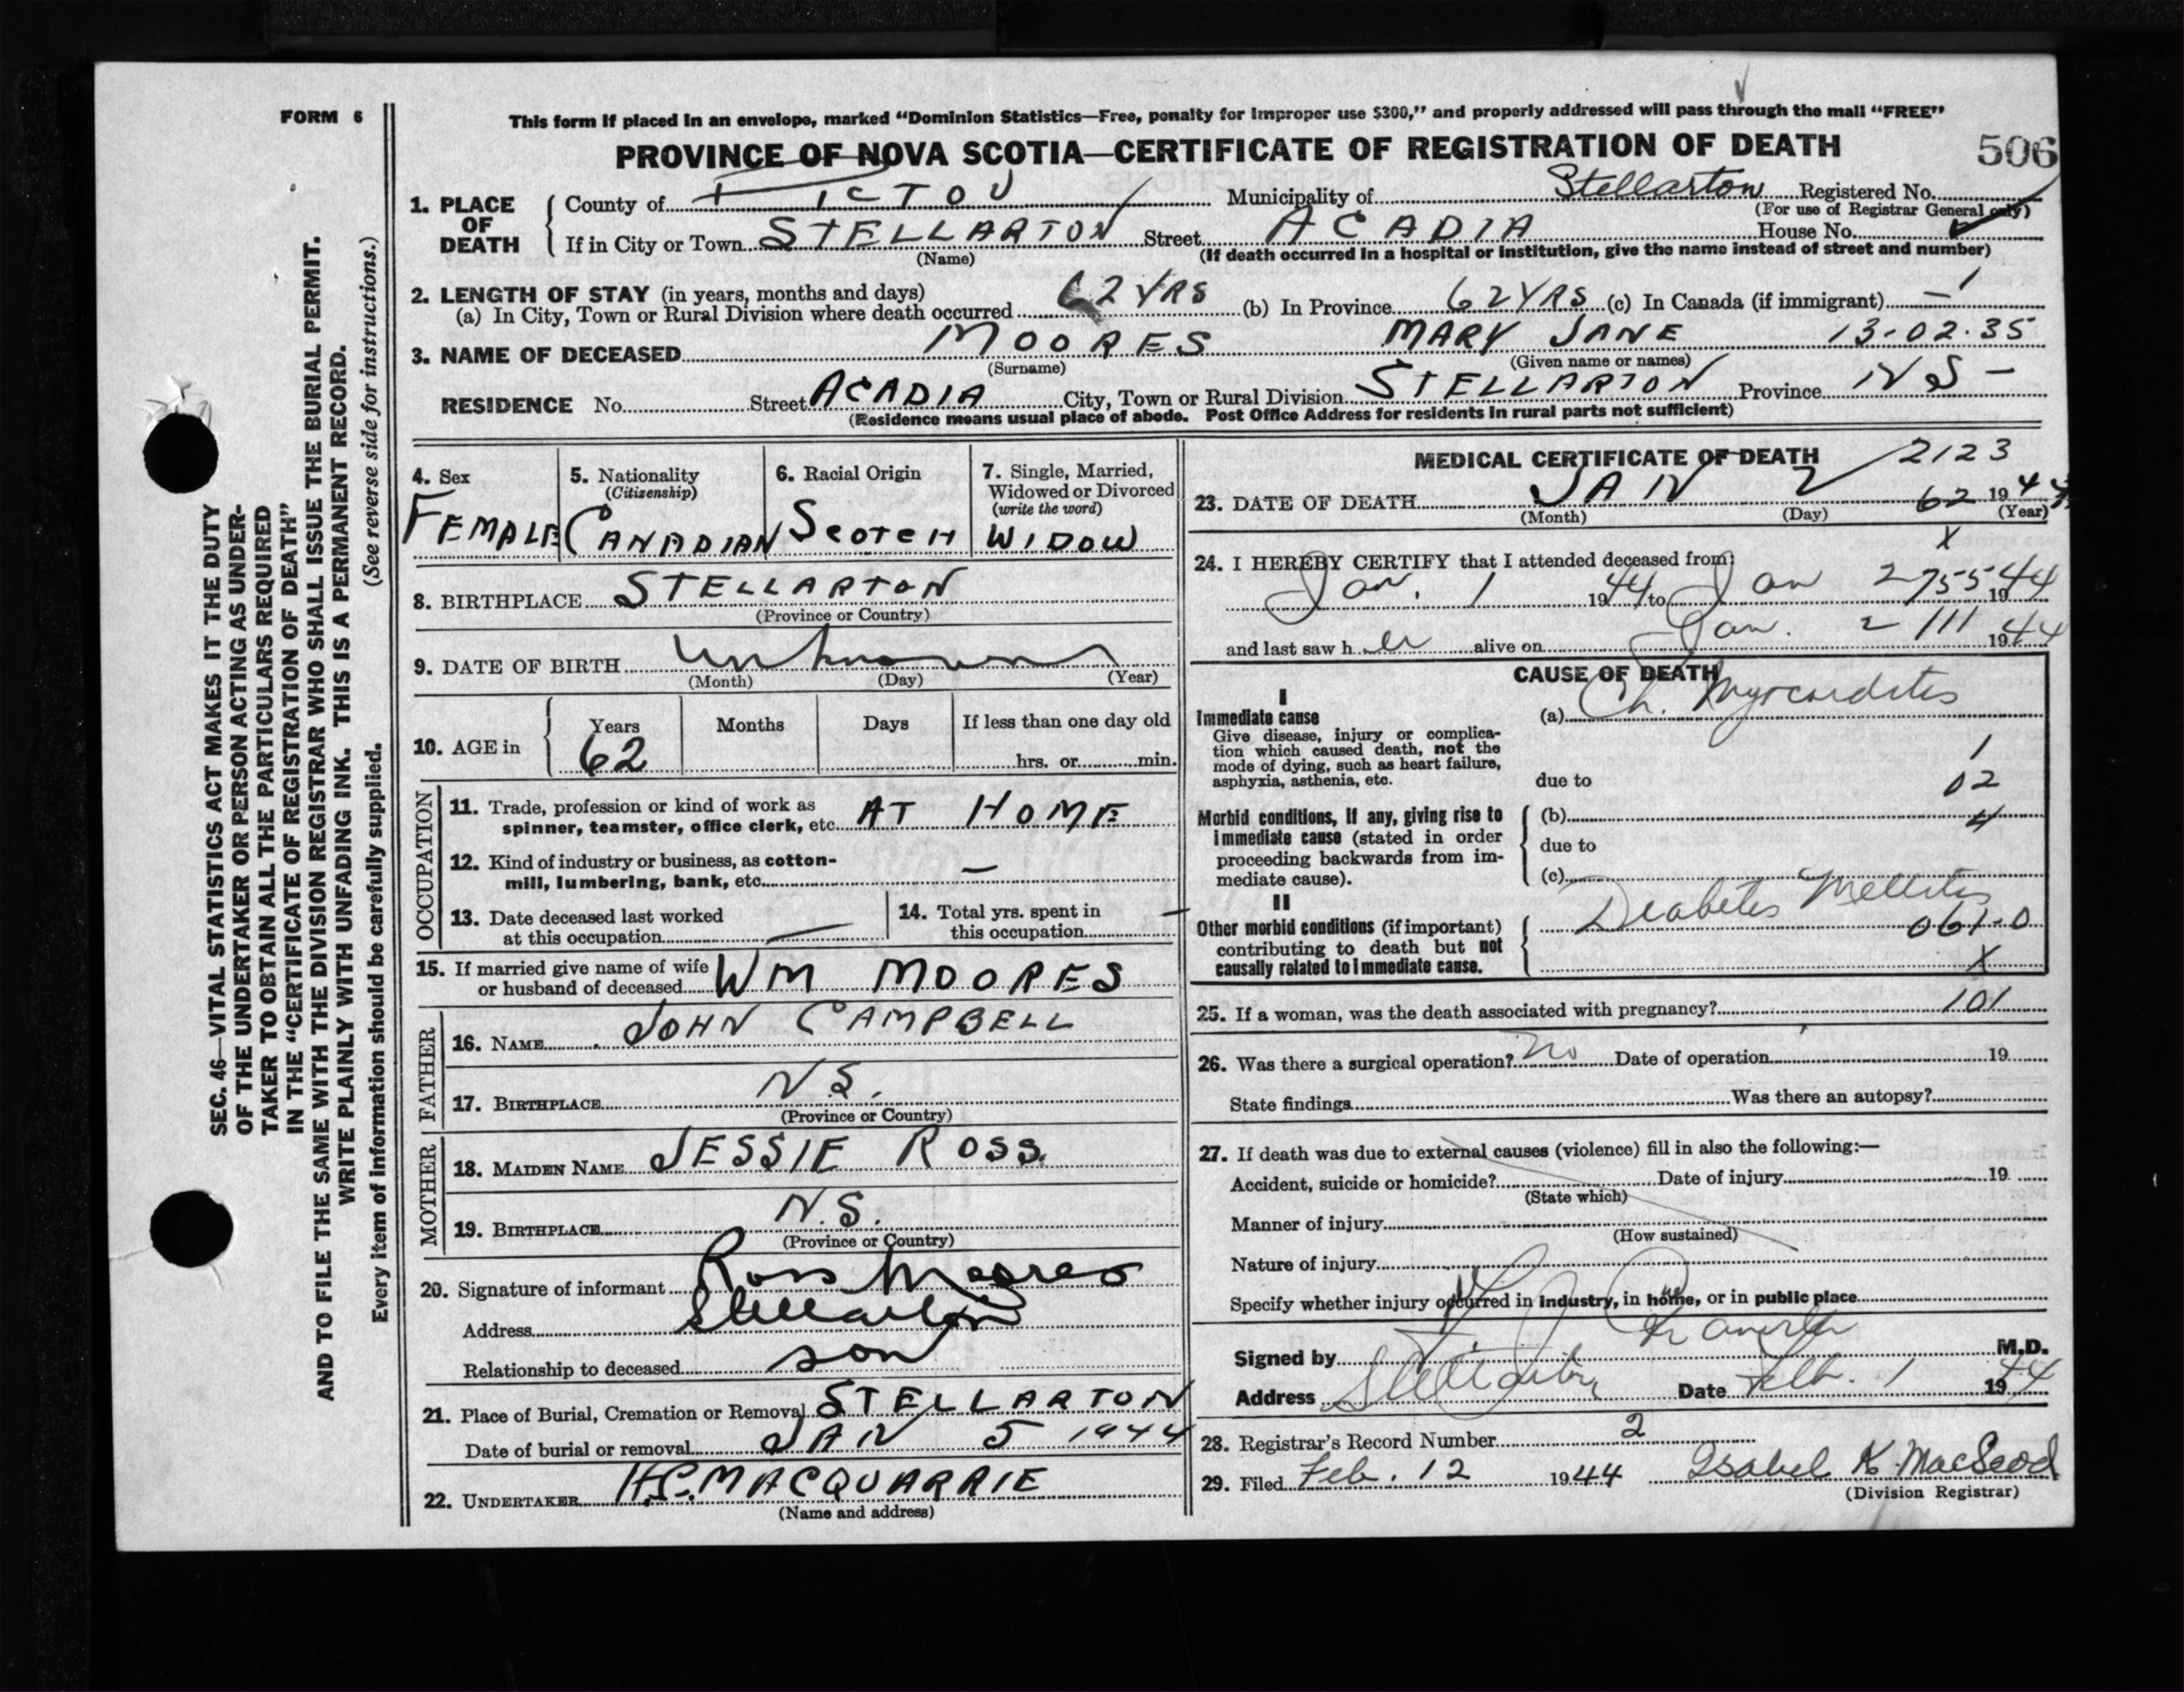 FORM 6
This form if placed in an envelope, marked “Dominion Statistics—Free, penalty for improper use $300,” and properly addressed will pass through the mail “FREE”
PROVINCE OF NOVA SCOTIA—CERTIFICATE OF REGISTRATION OF DEATH
506
1. PLACE OF DEATH
County of PICTOU Municipality of Stellarton Registered No.
(For use of Registrar General only)
If in City or Town STELLARTON Street ACADIA House No.
(Name) (If death occurred in a hospital or institution, give the name instead of street and number)
2. LENGTH OF STAY (in years, months and days)
(a) In City, Town or Rural Division where death occurred 62 YRS (b) In Province 62 YRS (c) In Canada (if immigrant) — 1
3. NAME OF DECEASED MOORES MARY JANE 13-02-35
(Surname) (Given name or names)
RESIDENCE No. Street ACADIA City, Town or Rural Division STELLARTON Province NS -
(Residence means usual place of abode. Post Office Address for residents in rural parts not sufficient)
4. Sex
FEMALE
5. Nationality
(Citizenship)
CANADIAN
6. Racial Origin
SCOTCH
7. Single, Married,
Widowed or Divorced
(write the word)
WIDOW
8. BIRTHPLACE STELLARTON
(Province or Country)
9. DATE OF BIRTH Unknown
(Month) (Day) (Year)
10. AGE in
Years Months Days If less than one day old
62 hrs. or min.
OCCUPATION
11. Trade, profession or kind of work as
spinner, teamster, office clerk, etc. AT HOME
12. Kind of industry or business, as cotton-
mill, lumbering, bank, etc. —
13. Date deceased last worked
at this occupation —
14. Total yrs. spent in
this occupation —
15. If married give name of wife
or husband of deceased WM MOORES
FATHER
16. NAME JOHN CAMPBELL
17. BIRTHPLACE N.S.
(Province or Country)
MOTHER
18. MAIDEN NAME JESSIE ROSS.
19. BIRTHPLACE N.S.
(Province or Country)
20. Signature of informant Ross Moores
Address Stellarton
Relationship to deceased son
21. Place of Burial, Cremation or Removal STELLARTON
Date of burial or removal JAN 5 1944
22. UNDERTAKER H.C. MACQUARRIE
(Name and address)
MEDICAL CERTIFICATE OF DEATH 2123
23. DATE OF DEATH JAN 2 62 1944
(Month) (Day) (Year)
X
24. I HEREBY CERTIFY that I attended deceased from:
Jan. 1 1944 to Jan 2 755 1944
and last saw her alive on Jan. 2 111 1944
CAUSE OF DEATH
I
Immediate cause
Give disease, injury or complica-
tion which caused death, not the
mode of dying, such as heart failure,
asphyxia, asthenia, etc.
(a) Ch. Myocarditis
1
due to 02
Morbid conditions, if any, giving rise to
immediate cause (stated in order
proceeding backwards from im-
mediate cause).
(b) 4
due to
(c)
II
Other morbid conditions (if important)
contributing to death but not
causally related to immediate cause.
Diabetes Mellitus
061-0
X
25. If a woman, was the death associated with pregnancy? 101
26. Was there a surgical operation? no Date of operation 19
State findings Was there an autopsy?
27. If death was due to external causes (violence) fill in also the following:—
Accident, suicide or homicide? Date of injury 19
(State which)
Manner of injury
(How sustained)
Nature of injury
Specify whether injury occurred in industry, in home, or in public place
Signed by M.D.
Address Stellarton Date Feb. 1 1944
28. Registrar's Record Number 2
29. Filed Feb. 12 1944 Isabel K. MacLeod
(Division Registrar)
SEC. 46—VITAL STATISTICS ACT MAKES IT THE DUTY
OF THE UNDERTAKER OR PERSON ACTING AS UNDER-
TAKER TO OBTAIN ALL THE PARTICULARS REQUIRED
IN THE “CERTIFICATE OF REGISTRATION OF DEATH”
AND TO FILE THE SAME WITH THE DIVISION REGISTRAR WHO SHALL ISSUE THE BURIAL PERMIT.
WRITE PLAINLY WITH UNFADING INK. THIS IS A PERMANENT RECORD.
Every item of information should be carefully supplied. (See reverse side for instructions.)